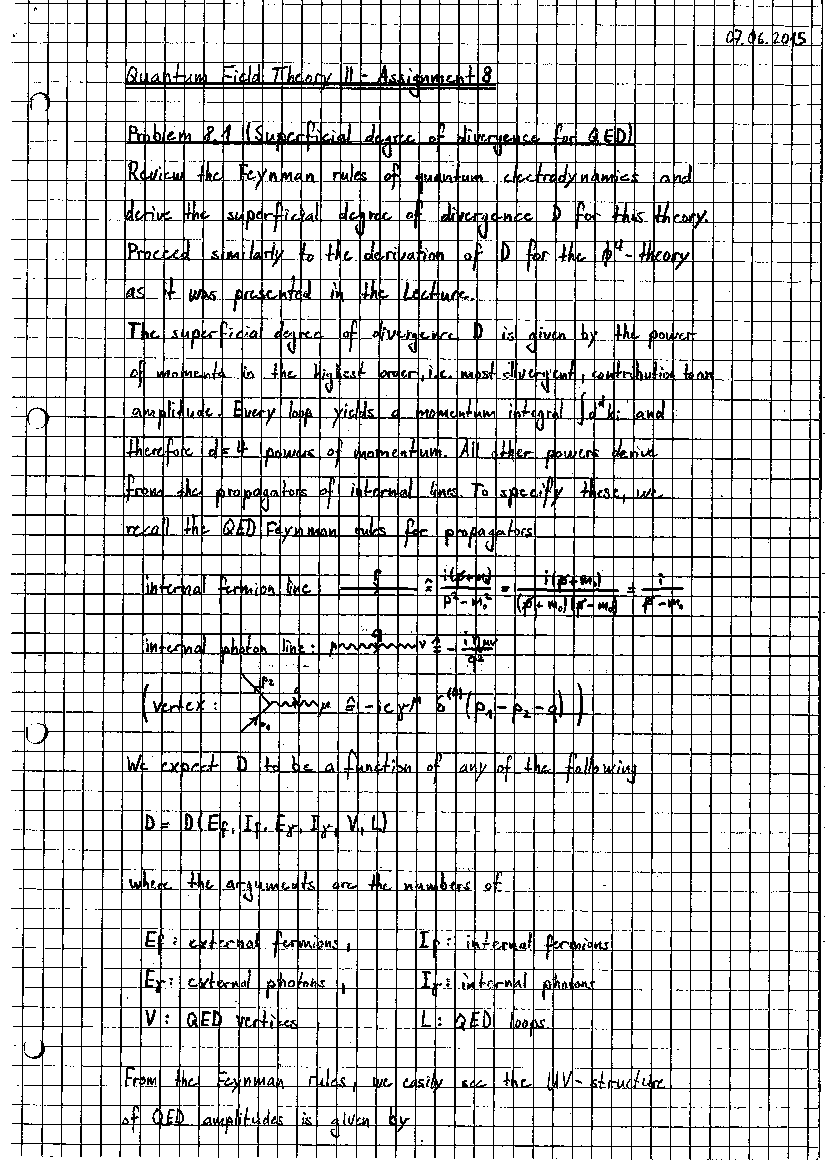 07.06.2015
Quantum Field Theory II - Assignment 8
Problem 8.1 (Superficial degree of divergence for QED)
Review the Feynman rules of quantum electrodynamics and
derive the superficial degree of divergence D for this theory.
Proceed similarly to the derivation of D for the ϕ⁴-theory
as it was presented in the lecture.
The superficial degree of divergence D is given by the power
of momenta in the highest order, i.e. most divergent, contribution to an
amplitude. Every loop yields a momentum integral ∫d⁴kᵢ and
therefore d=4 powers of momentum. All other powers derive
from the propagators of internal lines. To specify these, we
recall the QED Feynman rules for propagators
internal fermion line: p ≙ i(p̸+m₀)/(p²-m₀²) = i(p̸+m₀)/((p̸+m₀)(p̸-m₀)) = i/(p̸-m₀)
internal photon line: μ q ν ≙ - iημν/q²
(vertex: p₂ p₁ q μ ≙ -ieγ^μ δ⁽⁴⁾(p₁-p₂-q))
We expect D to be a function of any of the following
D = D(E_f, I_f, E_γ, I_γ, V, L)
where the arguments are the numbers of
E_f: external fermions, I_f: internal fermions
E_γ: external photons, I_γ: internal photons
V: QED vertices L: QED loops
From the Feynman rules, we easily see the UV-structure
of QED amplitudes is given by